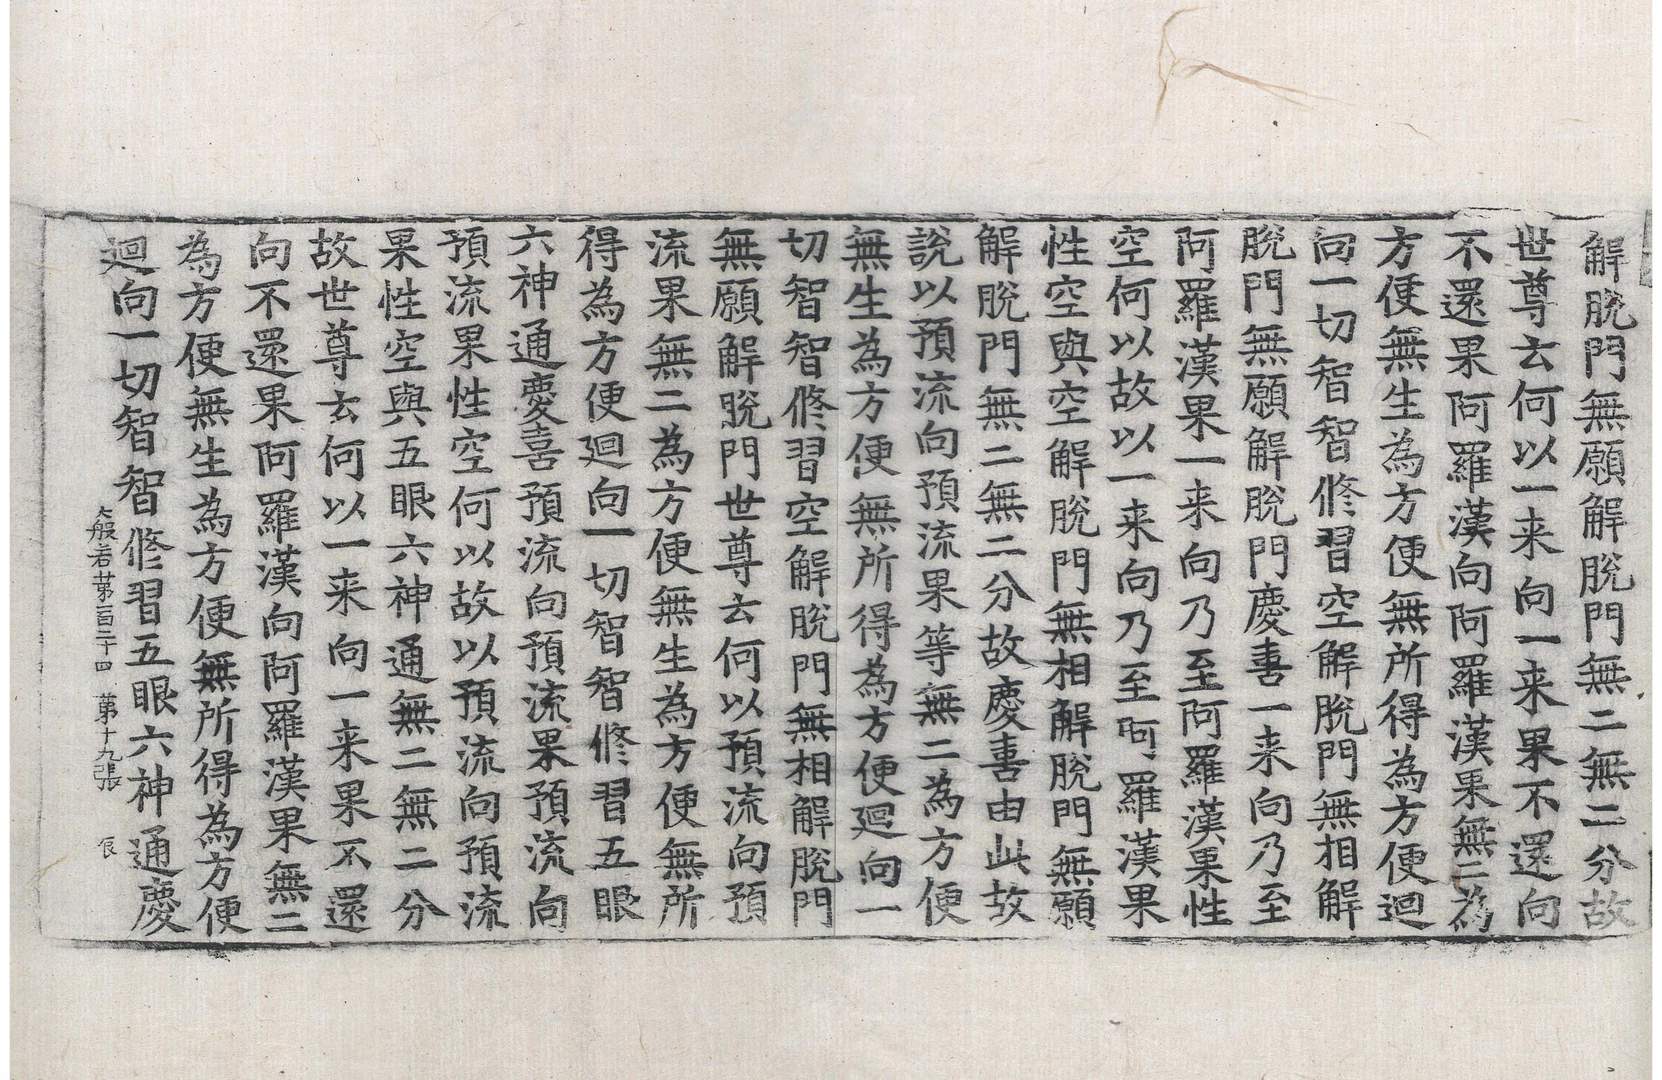 解脫門無願解脫門無二無二分故
世尊云何以一来向一来果不還向
不還果阿羅漢向阿羅漢果無二為
方便無生為方便無所得為方便迴
向一切智智修習空解脫門無相解
脫門無願解脫門慶喜一来向乃至
阿羅漢果一来向乃至阿羅漢果性
空何以故以一来向乃至阿羅漢果
性空與空解脫門無相解脫門無願
解脫門無二無二分故慶喜由此故
說以預流向預流果等無二為方便
無生為方便無所得為方便迴向一
切智智修習空解脫門無相解脫門
無願解脫門世尊云何以預流向預
流果無二為方便無生為方便無所
得為方便迴向一切智智修習五眼
六神通慶喜預流向預流果預流向
預流果性空何以故以預流向預流
果性空與五眼六神通無二無二分
故世尊云何以一来向一来果不還
向不還果阿羅漢向阿羅漢果無二
為方便無生為方便無所得為方便
迴向一切智智修習五眼六神通慶
大般若苐百二十四 苐十九張